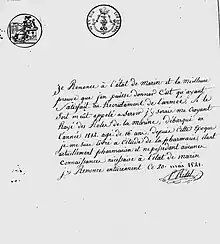 Je Renonce à l'état de marin et la meilleure
preuve que j'en puisse donner c'est qu'ayant
satisfait au Recrutement de l'armée, si le
sort m'eut appelé à servir j'y serais me croyant
Rayé des Rôles de la marine, débarqué en
l'année 1812 agé de 16 ans depuis cette époque
je me suis livré à l'étude de la pharmacie, étant
actuellement pharmacien et ne possédant aucunes
connaissances nautiques à l'état de marin
j'y Renonce entièrement ce 20 mai 1821.